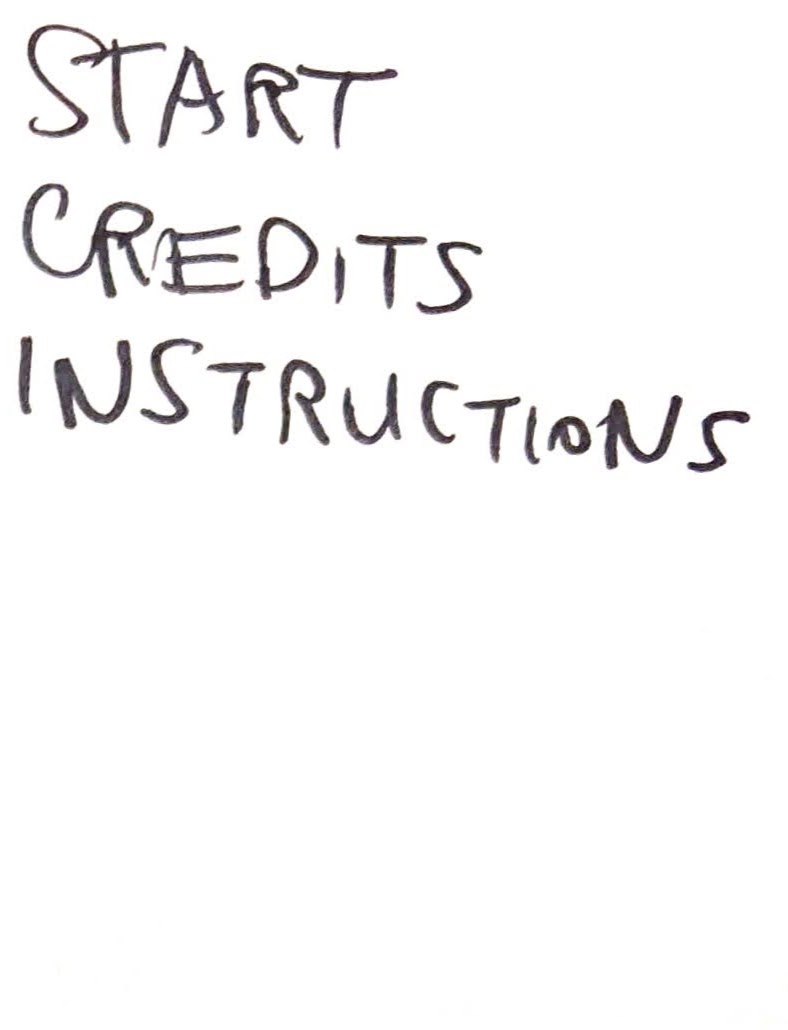 START
CREDITS
INSTRUCTIONS